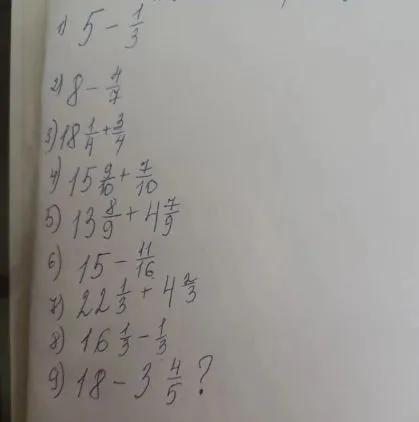 1) 5 - 1/3
2) 8 - 4/7
3) 18 1/4 + 3/4
4) 15 9/10 + 7/10
5) 13 8/9 + 4 7/9
6) 15 - 11/16
7) 22 1/3 + 4 2/3
8) 16 1/3 - 1/3
9) 18 - 3 4/5 ?